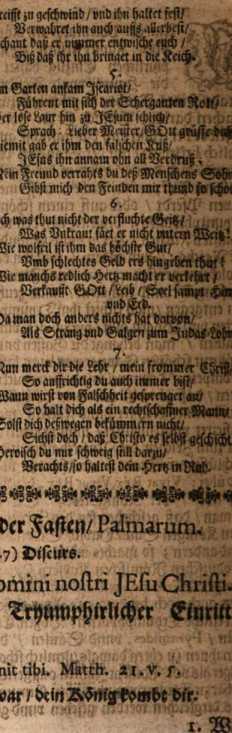 greifft zu geschwind / und ihn haltet fest /
Verwahret ihn auch auffs allerbest /
schant daß er nimmer entwische euch /
Biß daß ihr ihn bringet in die Reich.
5.
Im Garten ankam Iscariot /
Führent mit sich der Scherganten Rott /
Der lose Laur hin zu JEsum schlich /
Sprach: Lieber Meister / GOtt grüsse dich
Hiemit gab er ihm den falschen Kuß /
JEsus ihn annam ohn all Verdruß.
Mein Freund verrahts du deß Menschen Sohn
Gibst mich den Feinden mit
6.
Ach was thut nicht der verfluchte Geitz /
Was Unkraut säet er nicht untern Weitz!
Wie wolfeil ist ihm das höchste Gut /
Umb schlechtes Geld ers hingeben thut!
Wie manchs redlich Hertz macht er verkehrt /
Verkaufft GOtt / Leib / Seel sampt
und Erd.
Da man doch anders nichts hat darvon /
Als Strang und Galgen zum Judas Lohn
7.
Nun merck dir die Lehr / mein frommer Christ
So auffrichtig du auch immer bist /
Wann wirst von Falschheit gesprenget an /
So halt dich als ein rechtschaffner Mann /
Solst dich deßwegen bekümmern nicht /
Siehst doch / daß Christo es selbst geschicht
Heroisch du nur schweig still darzu /
Verachts / so haltest dein Hertz in Ruh.
der Fasten / Palmarum.
7) Discurs.
omini nostri JEsu Christi.
Tryumphirlicher Einritt
nit tibi. Matth. 21. v. 5.
war / dein König kombt dir.
1. W